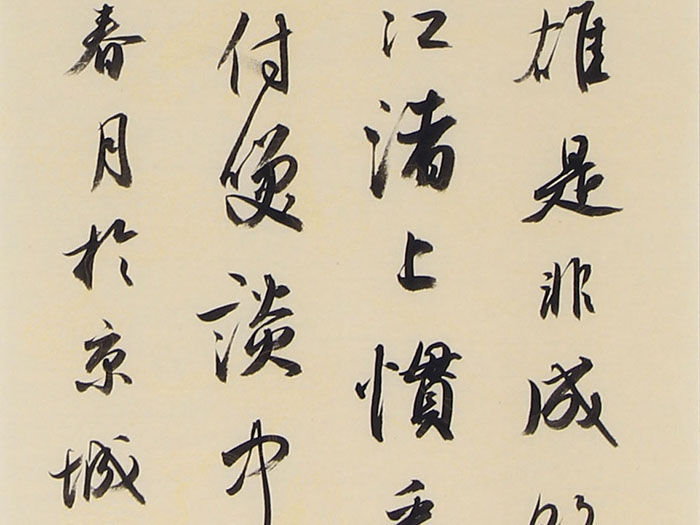 雄是非成
江渚上慣
付笑談中
春月於京城